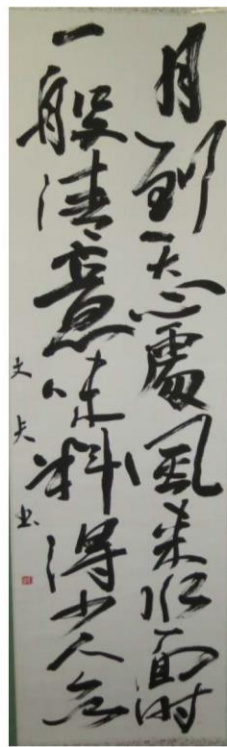 月到天心處風来水面時
一般清意味料得少人知